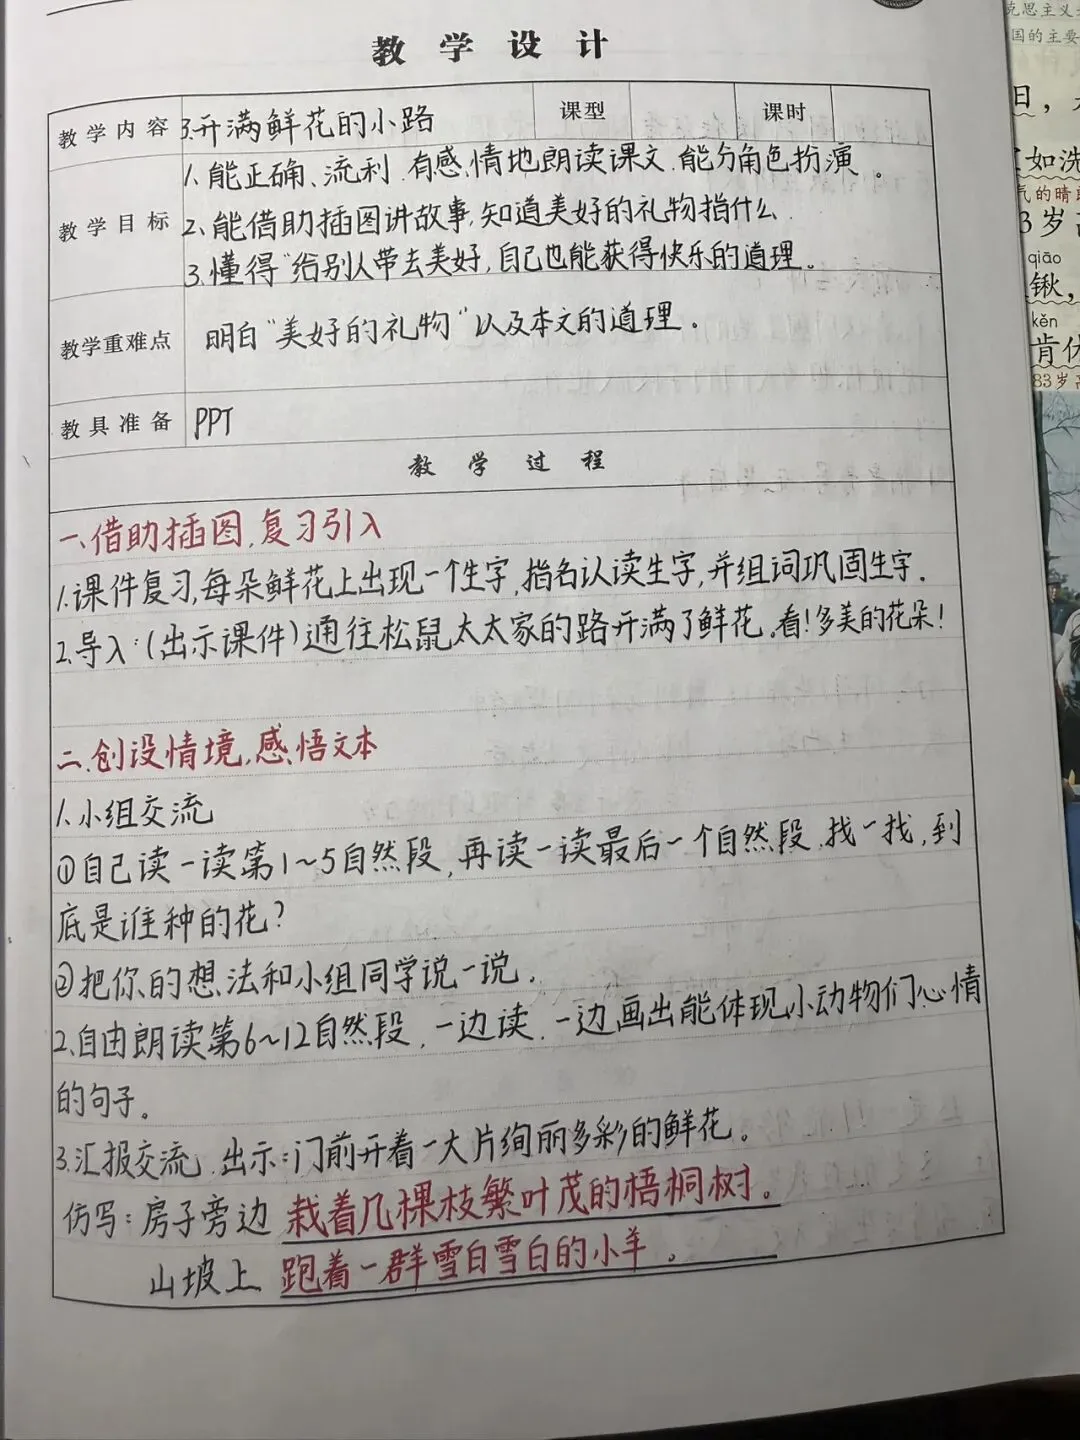 教学设计
教学内容 3.开满鲜花的小路 课型 课时
教学目标
1、能正确、流利、有感情地朗读课文.能分角色扮演。
2、能借助插图讲故事,知道美好的礼物指什么.
3.懂得“给别人带去美好,自己也能获得快乐的道理。
教学重难点 明白“美好的礼物“以及本文的道理。
教具准备 PPT
教学过程
一、借助插图,复习引入
1.课件复习,每朵鲜花上出现一个生字,指名认读生字,并组词巩固生字.
2.导入:(出示课件)通往松鼠太太家的路开满了鲜花。看!多美的花朵!
二.创设情境,感悟文本
1.小组交流
①自己读一读第1~5自然段,再读一读最后一个自然段.找一找,到
底是谁种的花?
②把你的想法和小组同学说一说.
2.自由朗读第6~12自然段,一边读.一边画出能体现小动物们心情
的句子。
3.汇报交流.出示:门前开着一大片绚丽多彩的鲜花。
仿写:房子旁边 栽着几棵枝繁叶茂的梧桐树。
山坡上 跑着一群雪白雪白的小羊。
克思主义
国的主要
日,
如洗
气的晴
3岁
qiāo
锹,
kěn
肯
83岁